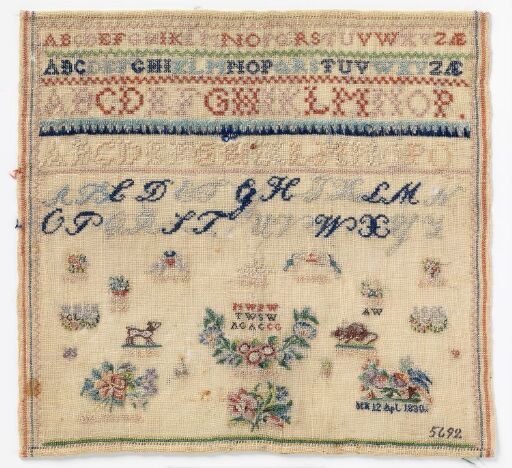 ABCDEFGHIKLMNOPQRSTUVWXYZÆ
ABCDEFGHIKLMNOPQRSTUVWXYZÆ
ABCDEFGHIKLMNOP.
ABCDEFGHIKLMNPO
ABCDEFGHIKLMN
OPQRSTUVWXYZ
MWSW
TWSW
AGAGCG
AW
12 Apl. 1830.
5692